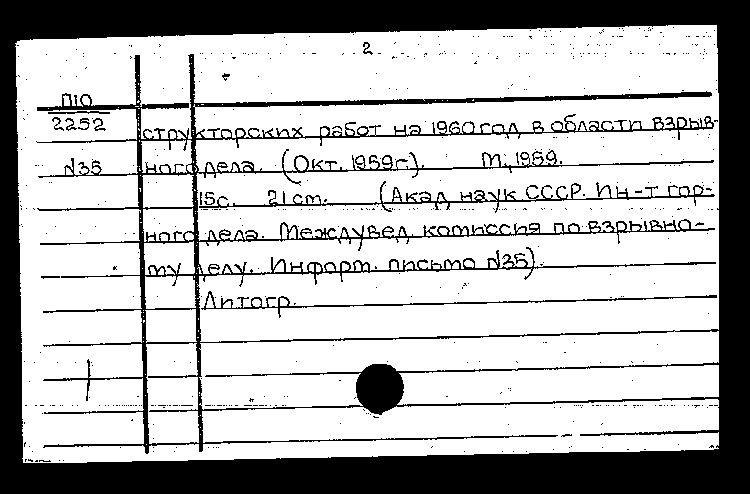 2
П10
2252
N35
структорских работ на 1960 год в области взрыв-
ного дела. (Окт. 1959г.). М., 1959.
15с. 21см. (Акад. наук СССР. Ин-т гор-
ного дела. Междувед. комиссия по взрывно-
му делу. Информ. письмо N35).
Литогр.